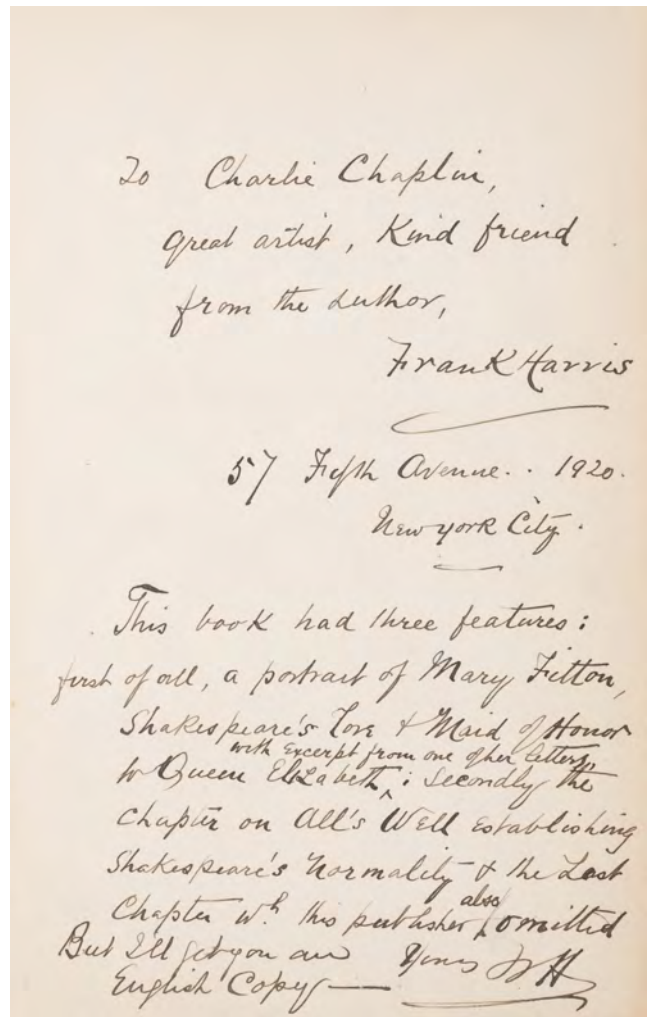 To Charlie Chaplin,
great artist, Kind friend
from the Author,
Frank Harris
57 Fifth Avenue. . 1920.
New York City.
This book had three features:
first of all, a portrait of Mary Fitton,
Shakespeare's Love & Maid of Honor
with Excerpt from one of her letters,
to Queen Elizabeth, ^ : Secondly the
Chapter on All's Well Establishing
Shakespeare's Normality & the Last
also
Chapter wh. this publisher ^ omitted
But I'll get you an Yours FH
English Copy —